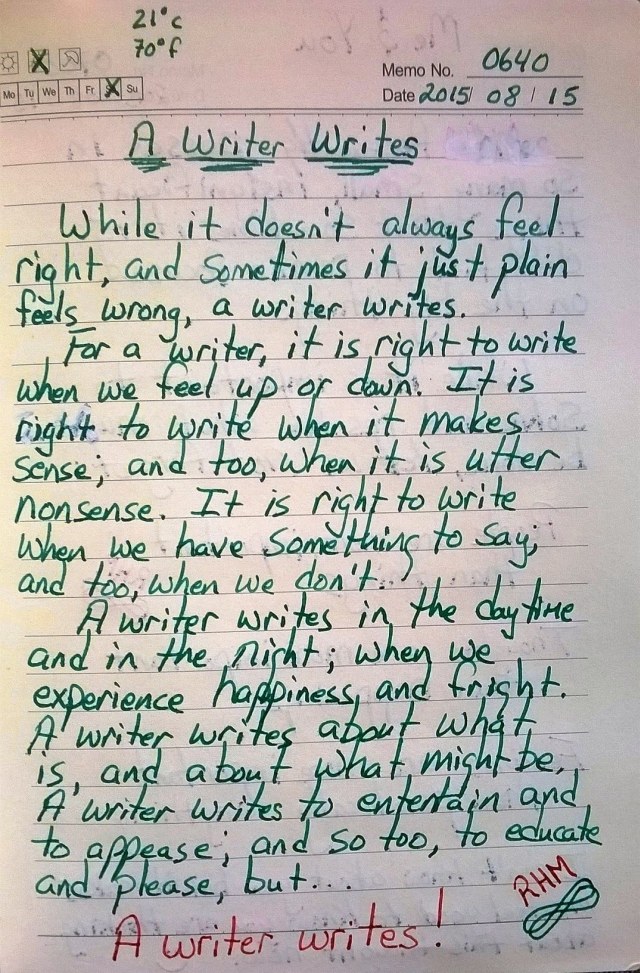 21°c
70°f
Memo No. 0640
Mo Tu We Th Fr Su
Date 2015/ 08 / 15
A Writer Writes
While it doesn't always feel
right, and sometimes it just plain
feels wrong, a writer writes.
For a writer, it is right to write
when we feel up or down. It is
right to write when it makes
sense; and too, when it is utter
nonsense. It is right to write
when we have something to say;
and too, when we don't.
A writer writes in the daytime
and in the night; when we
experience happiness, and fright.
A writer writes about what
is, and about what might be.
A writer writes to entertain and
to appease; and so too, to educate
and please, but...
A writer writes!
RHM